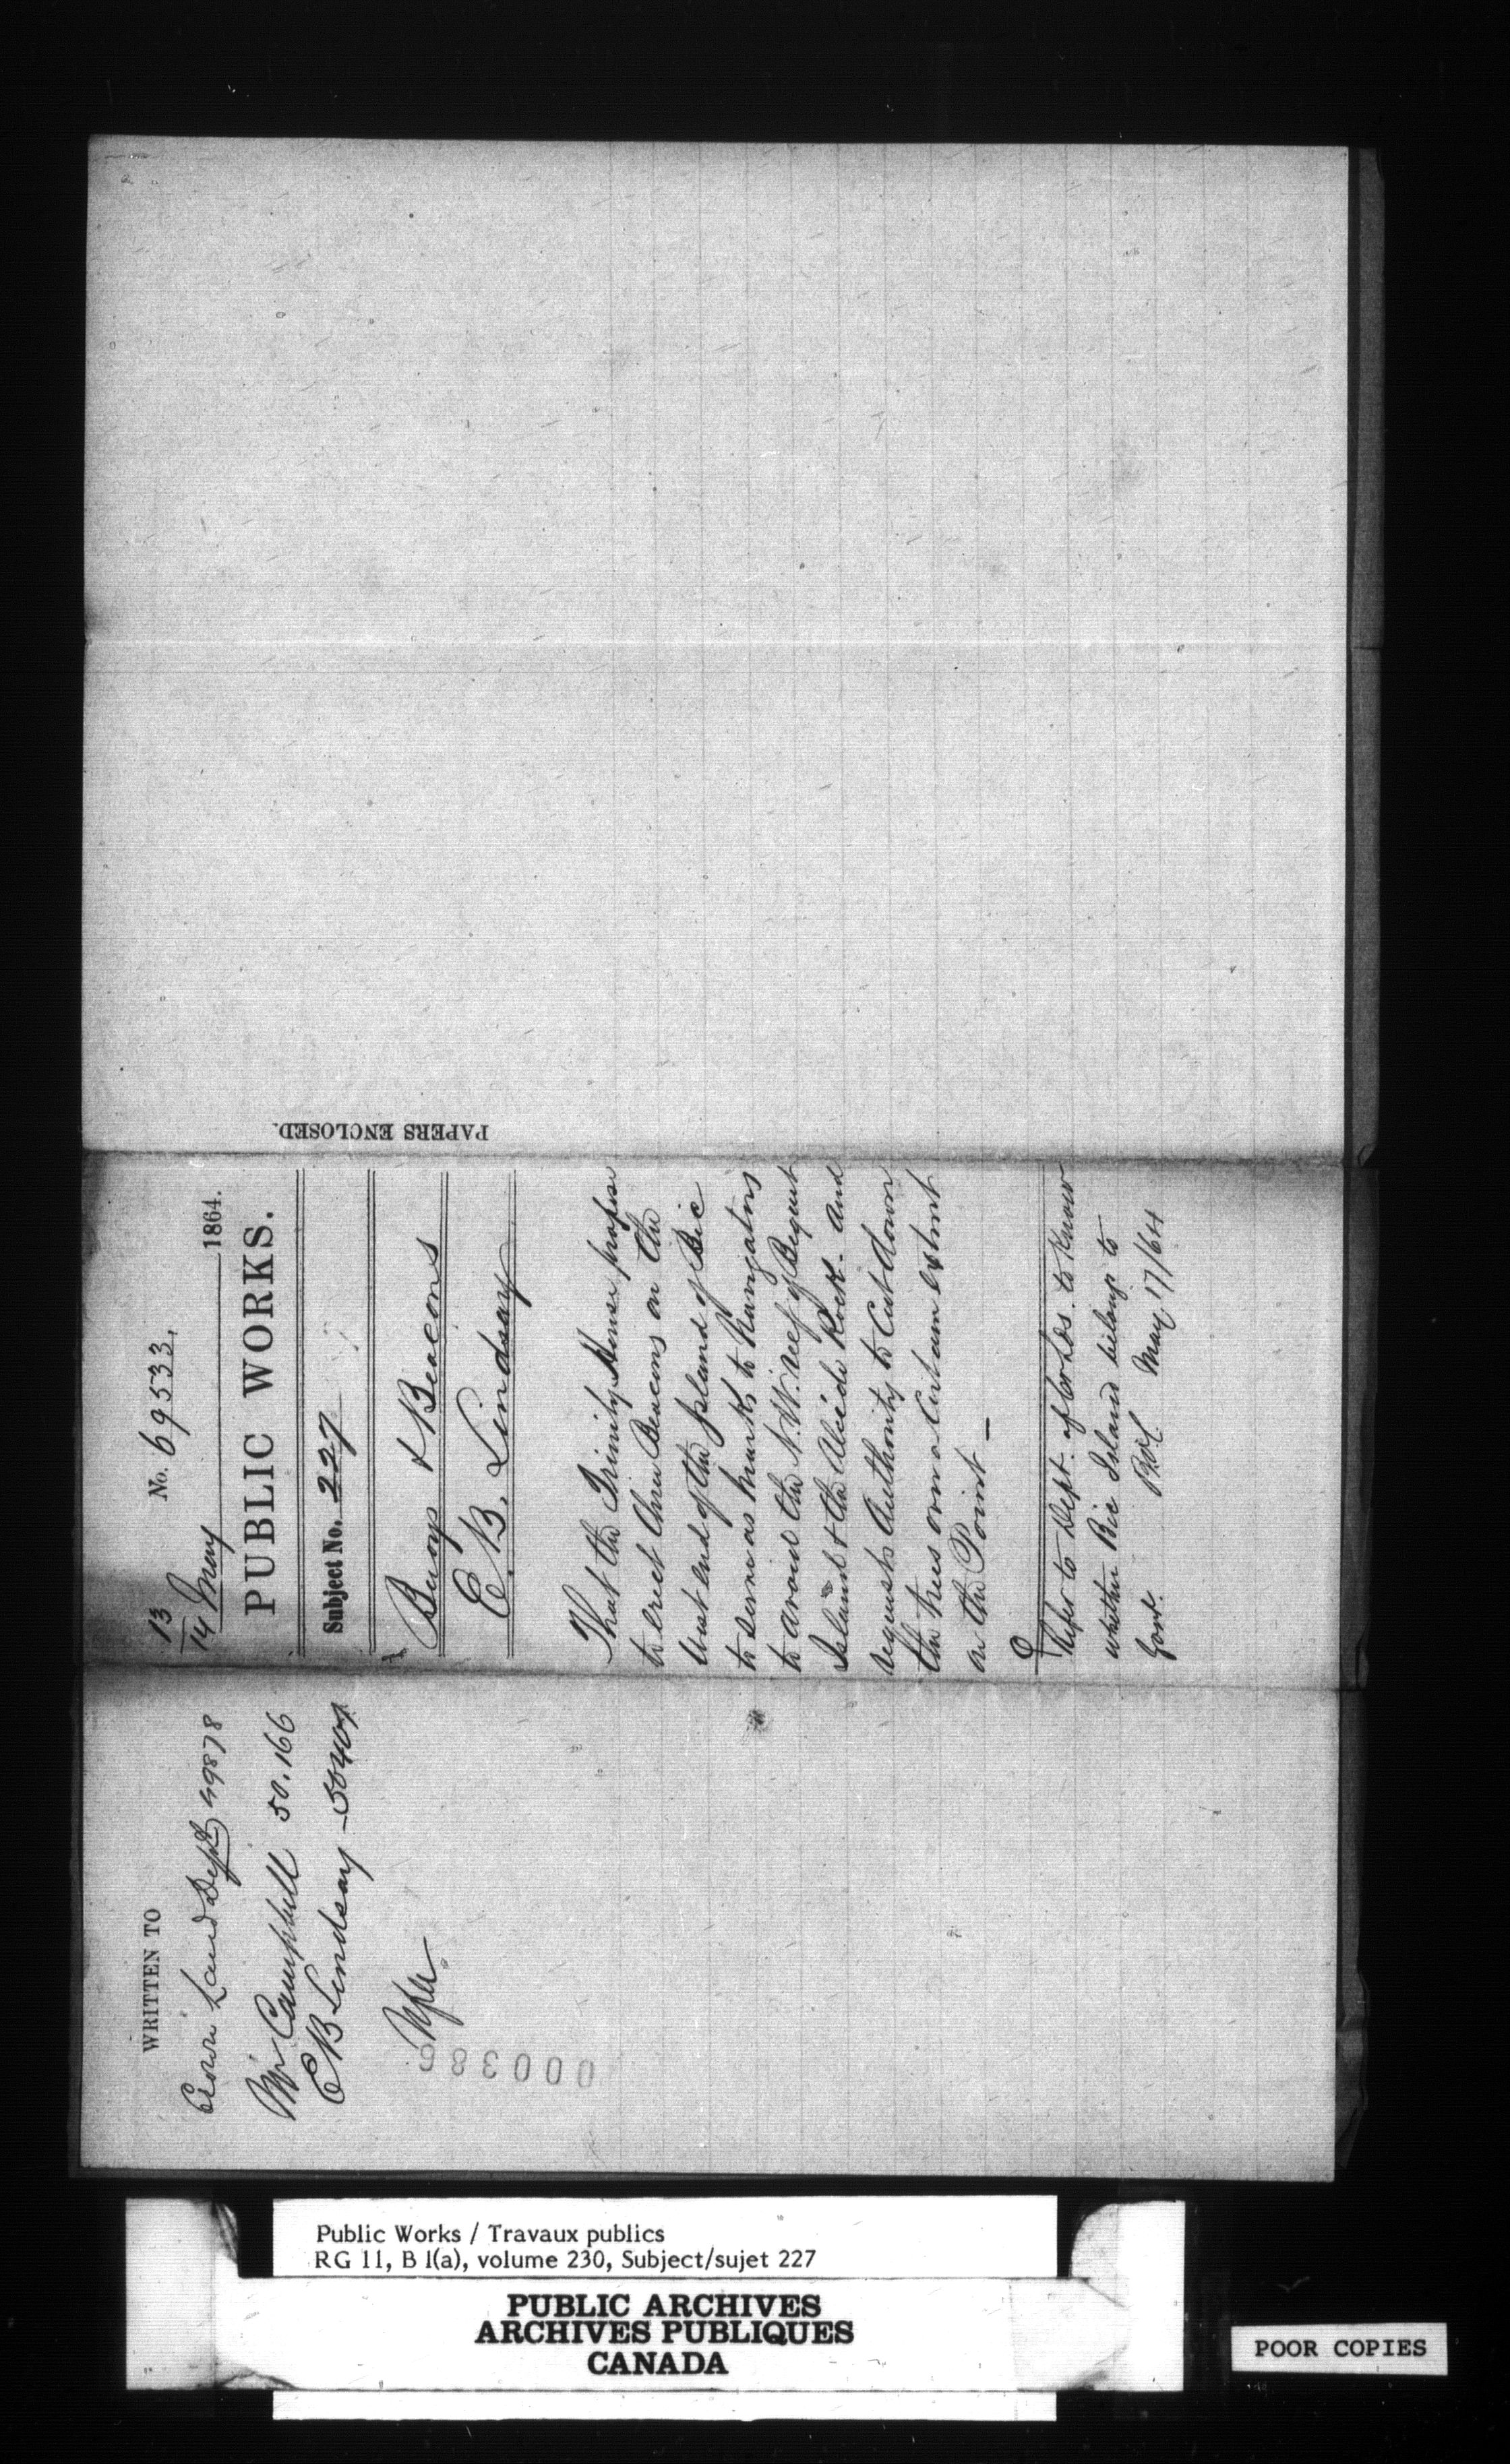 13/14 May No. 69533, 1864.
PUBLIC WORKS.
Subject No. 227
Buoys & Beacons
E. B. Lindsay
That the Trinity House propose
to erect three Beacons on the
West end of the Island of Bic
to serve as marks to Navigators
to avoid the N.W. reef of Bicquet
Island & the Alcide Rock. and
requests Authority to Cut down
the trees over a Certain extent
on the Point —
Refer to Dept. of Cr Lds. to Know
whether Bic Island belongs to
Govt. May 17/64
PAPERS ENCLOSED.
WRITTEN TO
Crown Land Dept 49878
Mr Campbell 50.166
E B Lindsay
000386
Public Works / Travaux publics
RG 11, B 1(a), volume 230, Subject/sujet 227
PUBLIC ARCHIVES
ARCHIVES PUBLIQUES
CANADA
POOR COPIES